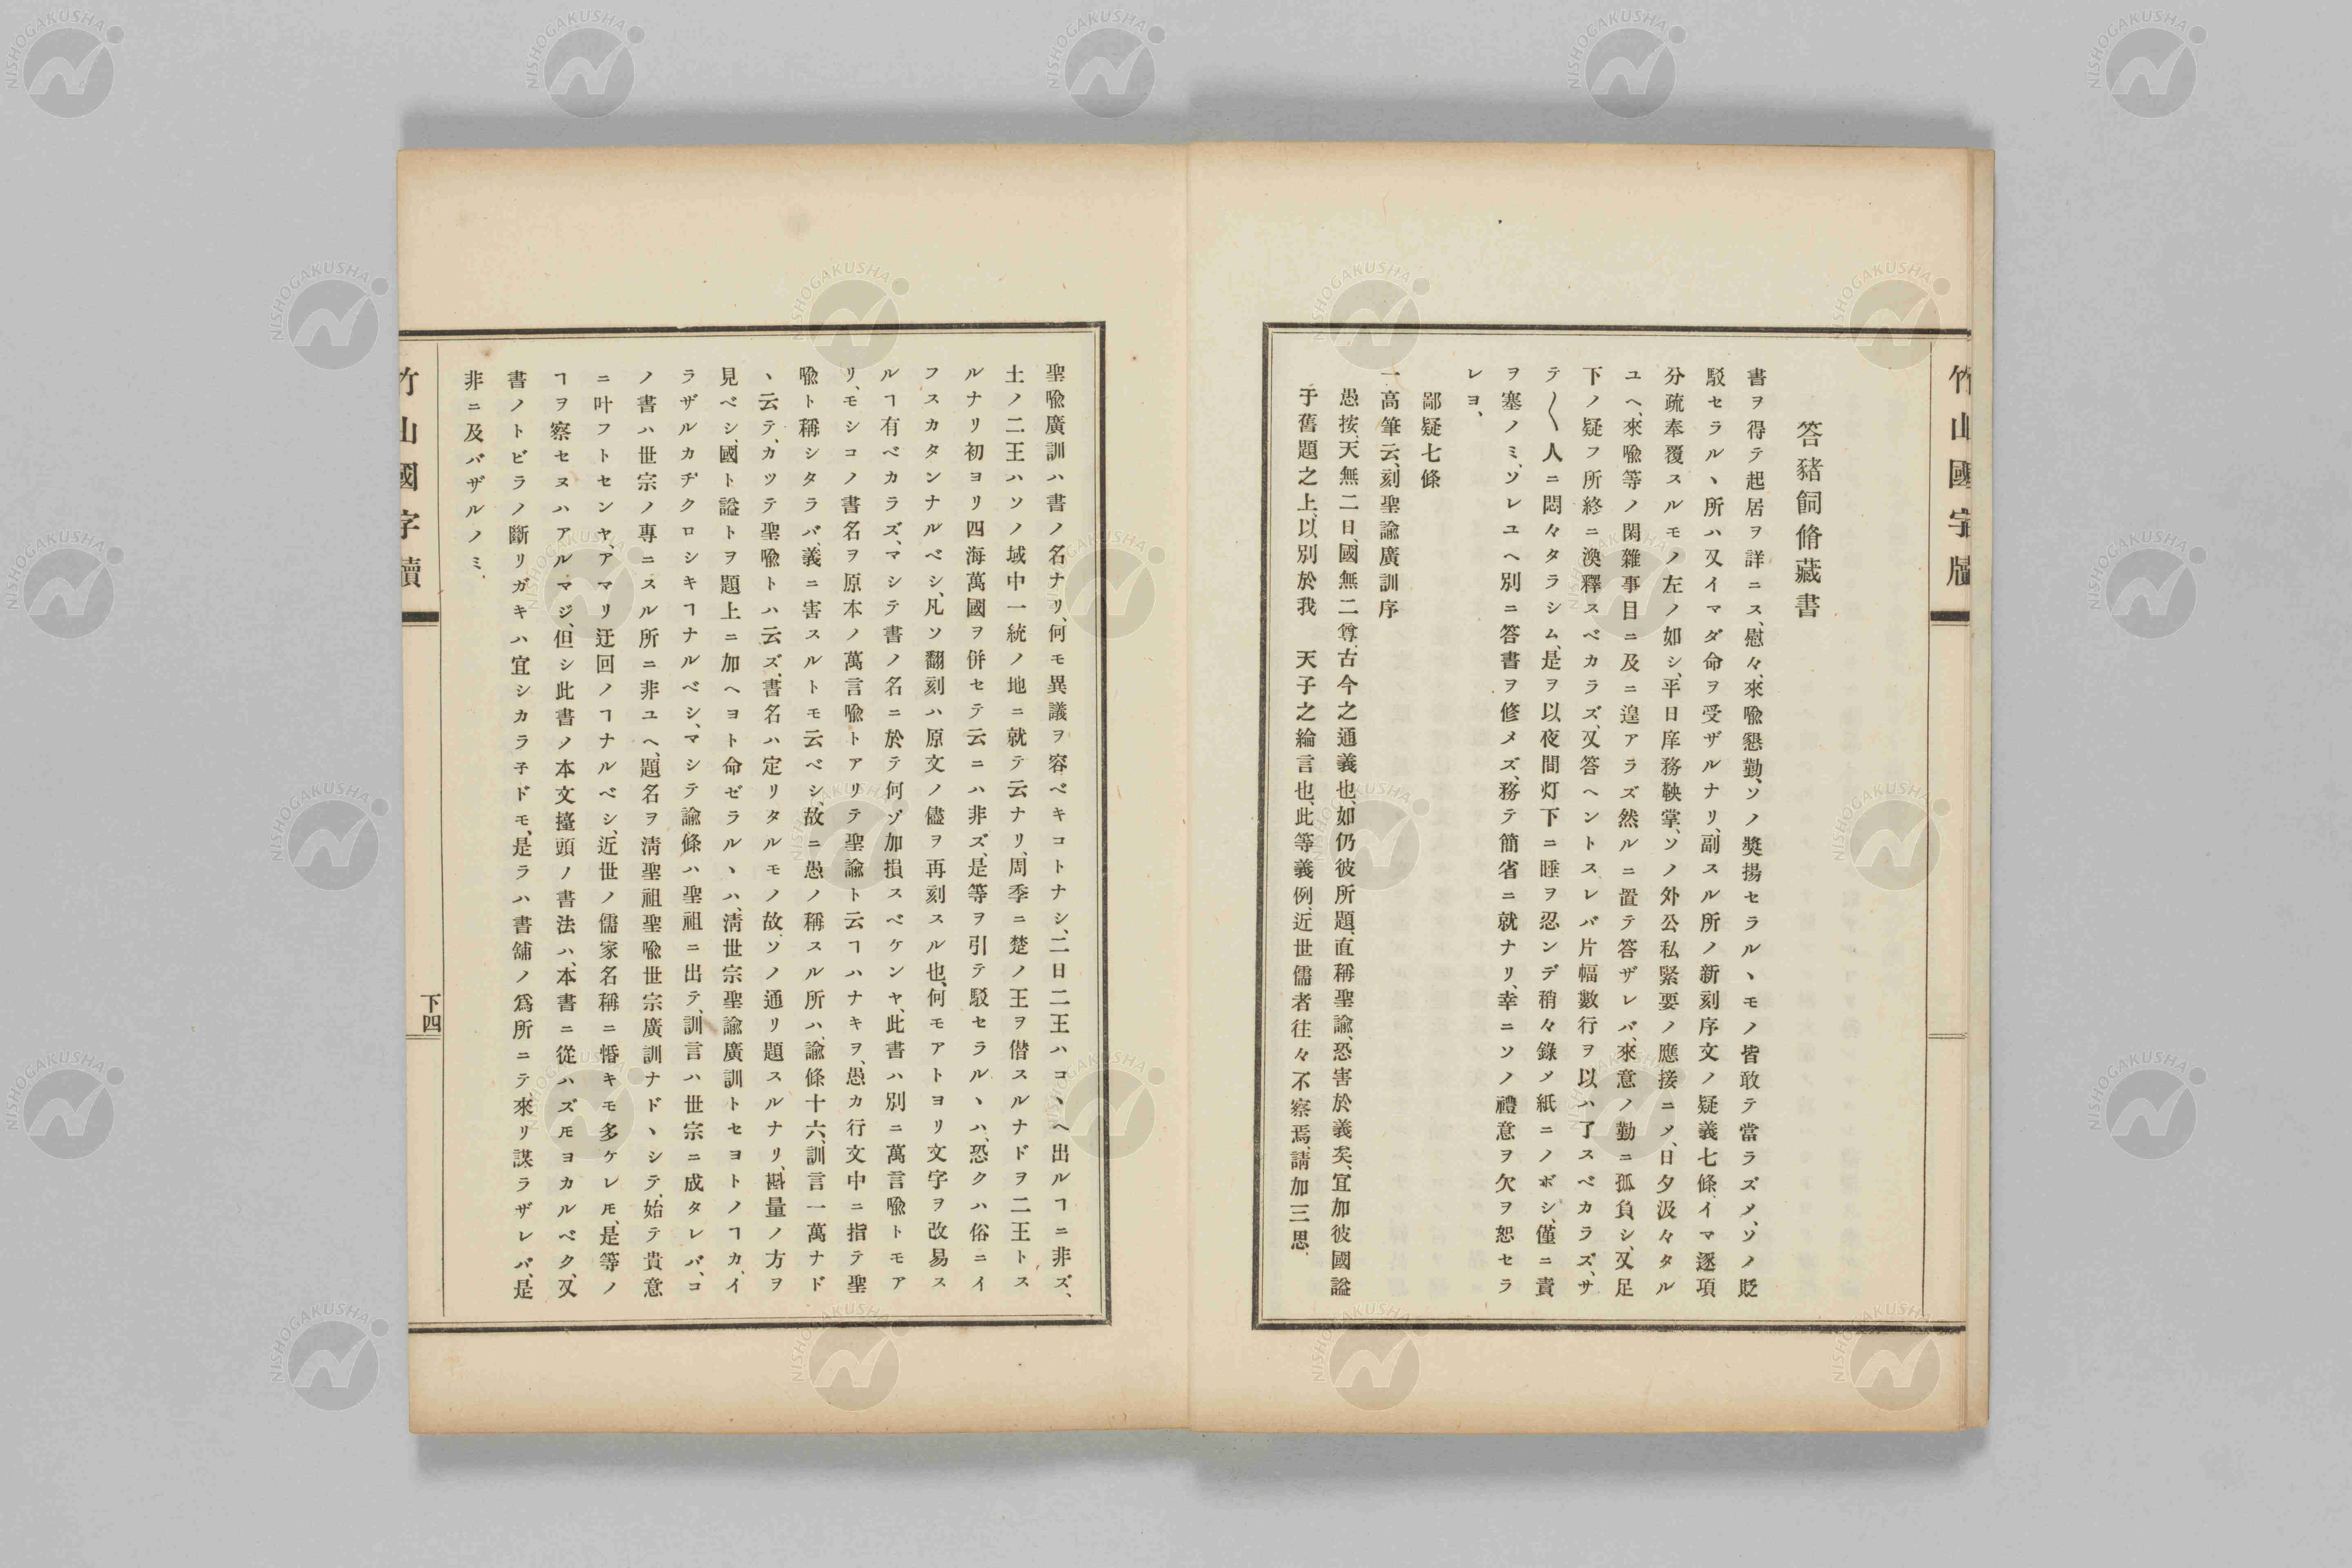 竹山國字牘
答豬飼脩藏書
書ヲ得テ起居ヲ詳ニス、慰々、來喩懇勤、ソノ奬揚セラルヽモノ皆敢テ當ラズメ、ソノ貶
駁セラルヽ所ハ又イマダ命ヲ受ザルナリ、副スル所ノ新刻序文ノ疑義七條、イマ逐項
分疏奉覆スルモノ左ノ如シ、平日庠務鞅掌、ソノ外公私緊要ノ應接ニメ、日夕汲々タル
ユヘ、來喩等ノ閑雜事目ニ及ニ遑アラズ然ルニ置テ答ザレバ、來意ノ勤ニ孤負シ、又足
下ノ疑フ所終ニ渙釋スベカラズ、又答ヘントスレバ片幅數行ヲ以ハ了スベカラズ、サ
テ〱人ニ悶々タラシム、是ヲ以夜間灯下ニ睡ヲ忍ンデ稍々錄メ紙ニノボシ、僅ニ責
ヲ塞ノミ、ソレユヘ別ニ答書ヲ修メズ、務テ簡省ニ就ナリ、幸ニソノ禮意ヲ欠ヲ恕セラ
レヨ、
鄙疑七條
一高筆云、刻聖諭廣訓序
愚按、天無二日、國無二尊、古今之通義也、如仍彼所題、直稱聖諭、恐害於義矣、宜加彼國謚
于舊題之上、以別於我　天子之綸言也、此等義例、近世儒者往々不察焉、請加三思、
聖喩廣訓ハ書ノ名ナリ、何モ異議ヲ容ベキコトナシ、二日二王ハコヽヘ出ルヿニ非ズ、
土ノ二王ハソノ域中一統ノ地ニ就テ云ナリ、周季ニ楚ノ王ヲ僭スルナドヲ二王トス
ルナリ初ヨリ四海萬國ヲ併セテ云ニハ非ズ、是等ヲ引テ駁セラルヽハ、恐クハ俗ニイ
フスカタンナルベシ、凡ソ翻刻ハ原文ノ儘ヲ再刻スル也、何モアトヨリ文字ヲ改易ス
ルヿ有ベカラズ、マシテ書ノ名ニ於テ何ゾ加損スベケンヤ、此書ハ別ニ萬言喩トモア
リ、モシコノ書名ヲ原本ノ萬言喩トアリテ聖諭ト云ヿハナキヲ、愚カ行文中ニ指テ聖
喩ト稱シタラバ、義ニ害スルトモ云ベシ、故ニ愚ノ稱スル所ハ、諭條十六、訓言一萬ナド
ヽ云テ、カツテ聖喩トハ云ズ、書名ハ定リタルモノ故、ソノ通リ題スルナリ、斟量ノ方ヲ
見ベシ、國ト謚トヲ題上ニ加ヘヨト命ゼラルヽハ、淸世宗聖諭廣訓トセヨトノヿカ、イ
ラザルカヂクロシキヿナルベシ、マシテ諭條ハ聖祖ニ出テ、訓言ハ世宗ニ成タレバ、コ
ノ書ハ世宗ノ專ニスル所ニ非ユヘ、題名ヲ淸聖祖聖喩世宗廣訓ナドヽシテ、始テ貴意
ニ叶フトセンヤ、アマリ迂回ノヿナルベシ、近世ノ儒家名稱ニ惛キモ多ケレ𪜈、是等ノ
ヿヲ察セヌハアルマジ、但シ此書ノ本文擡頭ノ書法ハ、本書ニ從ハズ𪜈ヨカルベク、又
書ノトビラノ斷リガキハ宜シカラ子ドモ、是ラハ書舖ノ爲所ニテ來リ謀ラザレバ、是
非ニ及バザルノミ、
竹山國字牘
下四